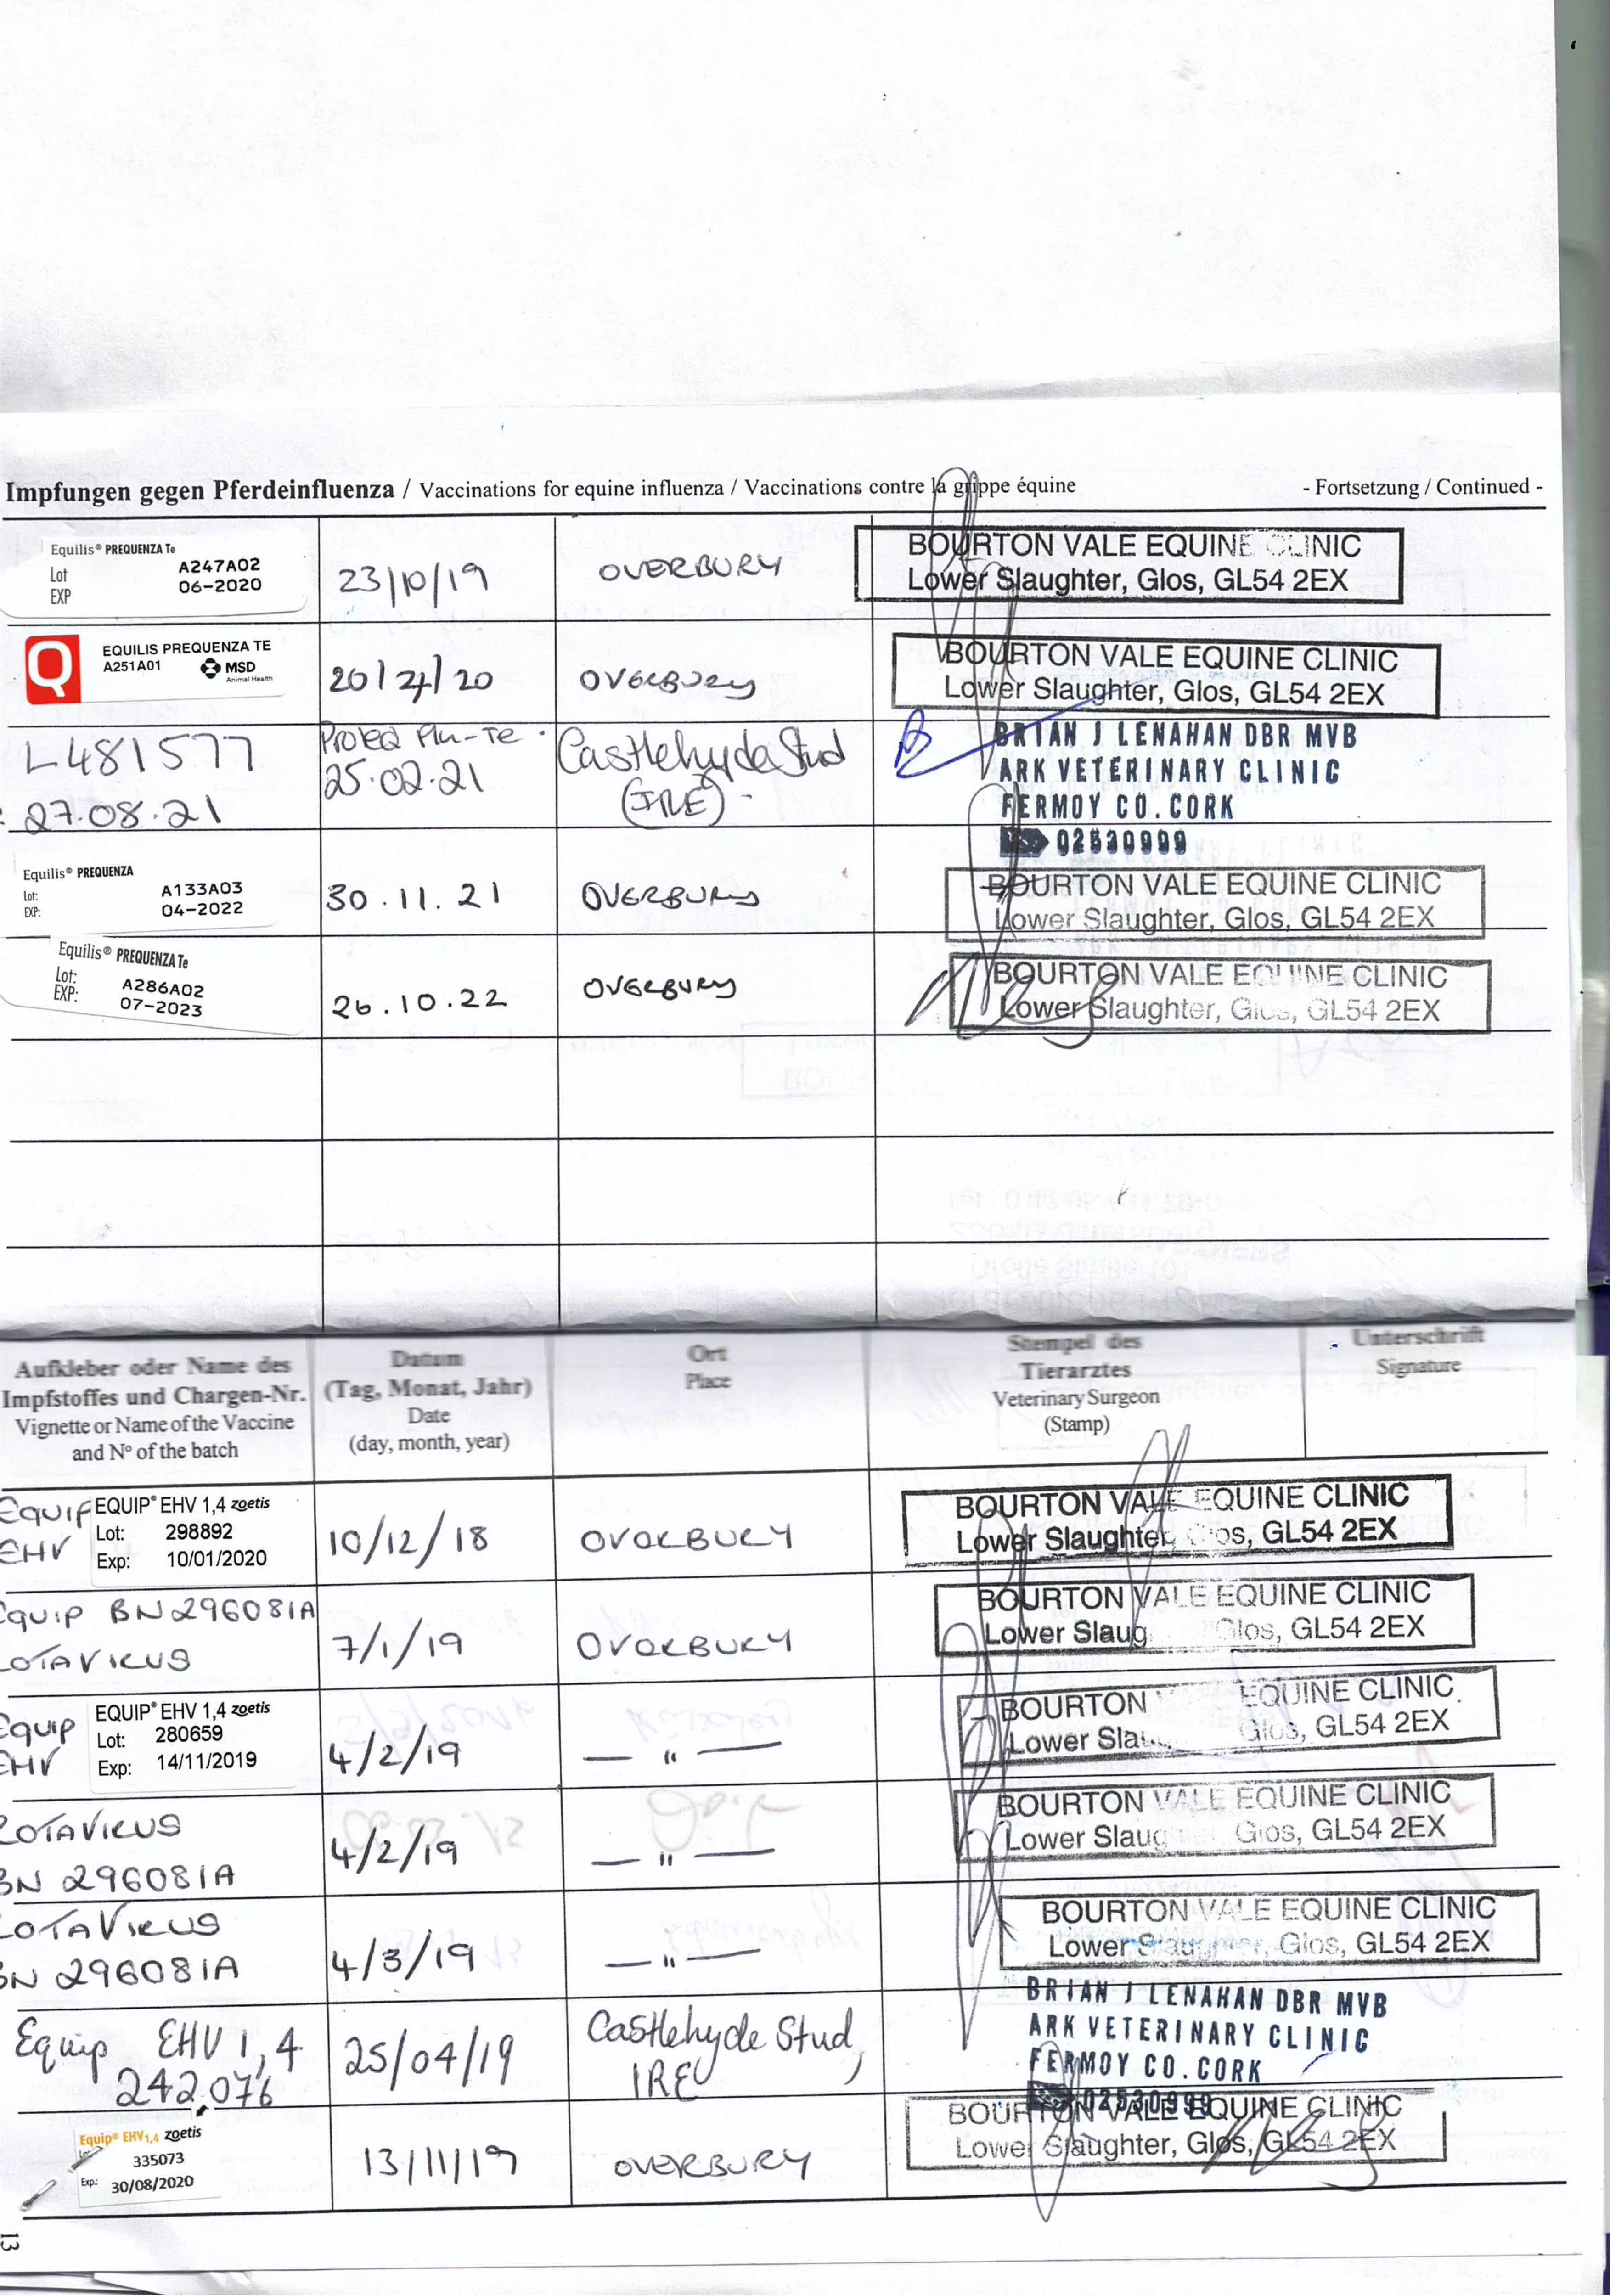 Impfungen gegen Pferdeinfluenza / Vaccinations for equine influenza / Vaccinations contre la grippe équine - Fortsetzung / Continued -
Equilis® PREQUENZA Te
Lot A247A02
EXP 06-2020
23/10/19
OVERBURY
BOURTON VALE EQUINE CLINIC
Lower Slaughter, Glos, GL54 2EX
Q
EQUILIS PREQUENZA TE
A251A01 MSD
Animal Health
20/ /20
OVERBURY
BOURTON VALE EQUINE CLINIC
Lower Slaughter, Glos, GL54 2EX
L481577
27.08.21
ProteQ Flu-Te
25.02.21
Castlehyde Stud
(IRE)
BRIAN J LENAHAN DBR MVB
ARK VETERINARY CLINIC
FERMOY CO. CORK
02530999
Equilis® PREQUENZA
Lot: A133A03
EXP: 04-2022
30.11.21
OVERBURY
BOURTON VALE EQUINE CLINIC
Lower Slaughter, Glos, GL54 2EX
Equilis® PREQUENZA Te
Lot: A286A02
EXP: 07-2023
26.10.22
OVERBURY
BOURTON VALE EQUINE CLINIC
Lower Slaughter, Glos, GL54 2EX
Aufkleber oder Name des
Impfstoffes und Chargen-Nr.
Vignette or Name of the Vaccine
and Nº of the batch
Datum
(Tag, Monat, Jahr)
Date
(day, month, year)
Ort
Place
Stempel des
Tierarztes
Veterinary Surgeon
(Stamp)
Unterschrift
Signature
EQUIP
EHV
EQUIP® EHV 1,4 zoetis
Lot: 298892
Exp: 10/01/2020
10/12/18
OVERBURY
BOURTON VALE EQUINE CLINIC
Lower Slaughter, Glos, GL54 2EX
EQUIP BN296081A
ROTAVIRUS
7/1/19
OVERBURY
BOURTON VALE EQUINE CLINIC
Lower Slaug Glos, GL54 2EX
EQUIP
EHV
EQUIP® EHV 1,4 zoetis
Lot: 280659
Exp: 14/11/2019
4/2/19
— " —
BOURTON EQUINE CLINIC
Lower Slau Glos, GL54 2EX
ROTAVIRUS
BN 296081A
4/2/19
— " —
BOURTON VALE EQUINE CLINIC
Lower Slaug Glos, GL54 2EX
ROTAVIRUS
BN 296081A
4/3/19
— " —
BOURTON VALE EQUINE CLINIC
Lower Slaughter, Glos, GL54 2EX
Equip EHV 1,4
242076
25/04/19
Castlehyde Stud,
IRE
BRIAN J LENAHAN DBR MVB
ARK VETERINARY CLINIC
FERMOY CO. CORK
02530999
Equip® EHV1,4 zoetis
335073
Exp: 30/08/2020
13/11/19
OVERBURY
BOURTON VALE EQUINE CLINIC
Lower Slaughter, Glos, GL54 2EX
13